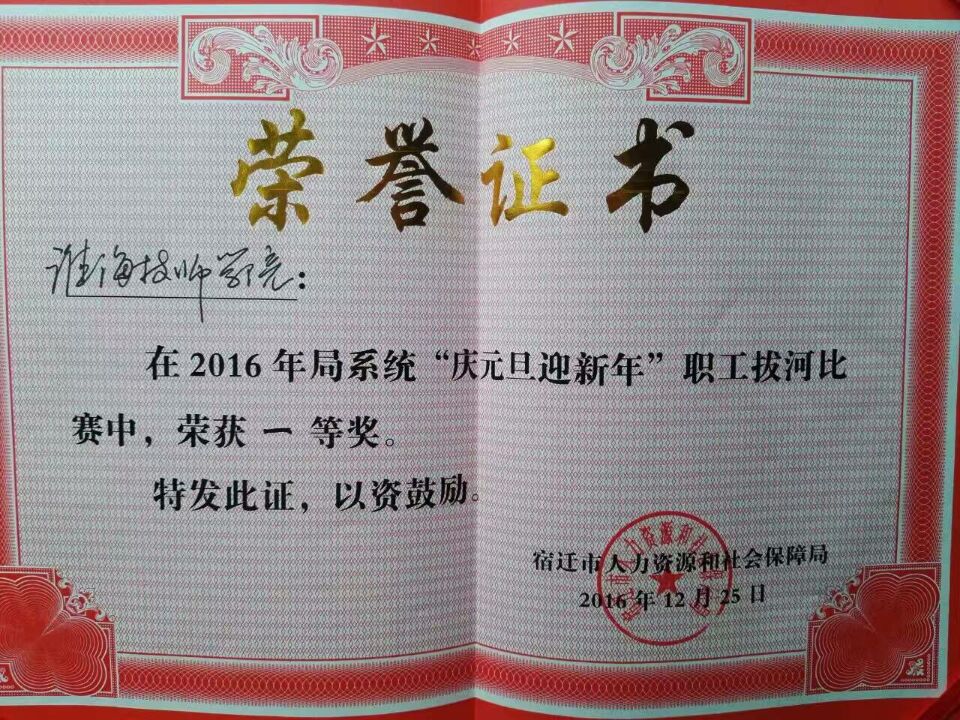 荣誉证书
淮海技师学院：
在2016年局系统“庆元旦迎新年”职工拔河比
赛中，荣获 一 等奖。
特发此证，以资鼓励。
宿迁市人力资源和社会保障局
2016年12月25日